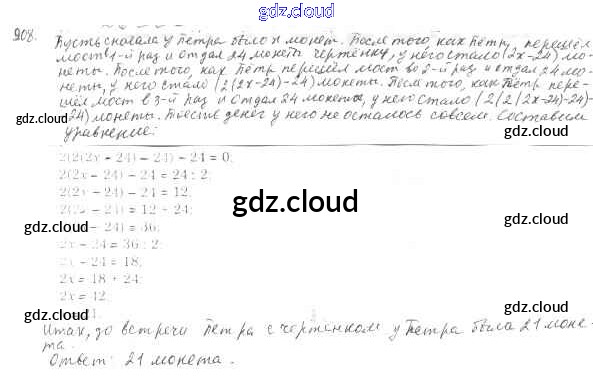 gdz.cloud
908.
Пусть сначала у Петра было х монет. После того, как Пётр перешёл
мост 1-й раз и отдал 24 монеты чертёнку, у него стало (2х-24) мо-
неты. После того, как Пётр перешёл мост во 2-й раз и отдал 24 мо-
неты, у него стало (2(2х-24)-24) монеты. После того, как Пётр пере-
шёл мост в 3-й раз и отдал 24 монеты, у него стало (2(2(2х-24)-24)-
-24) монеты. Вместе денег у него не осталось совсем. Составим
уравнение:
2(2(2x - 24) - 24) - 24 = 0;
2(2x - 24) - 24 = 24 : 2;
2(2x - 24) - 24 = 12;
2(2x - 24) = 12 + 24;
- 24) = 36;
2x - 24 = 36 : 2;
2x - 24 = 18;
2x = 18 + 24;
2x = 42;
gdz.cloud
gdz.cloud
gdz.cloud
gdz.cloud
gdz.cloud
Итак, до встречи Петра с чертёнком у Петра была 21 моне-
та.
Ответ: 21 монета.
gdz.cloud